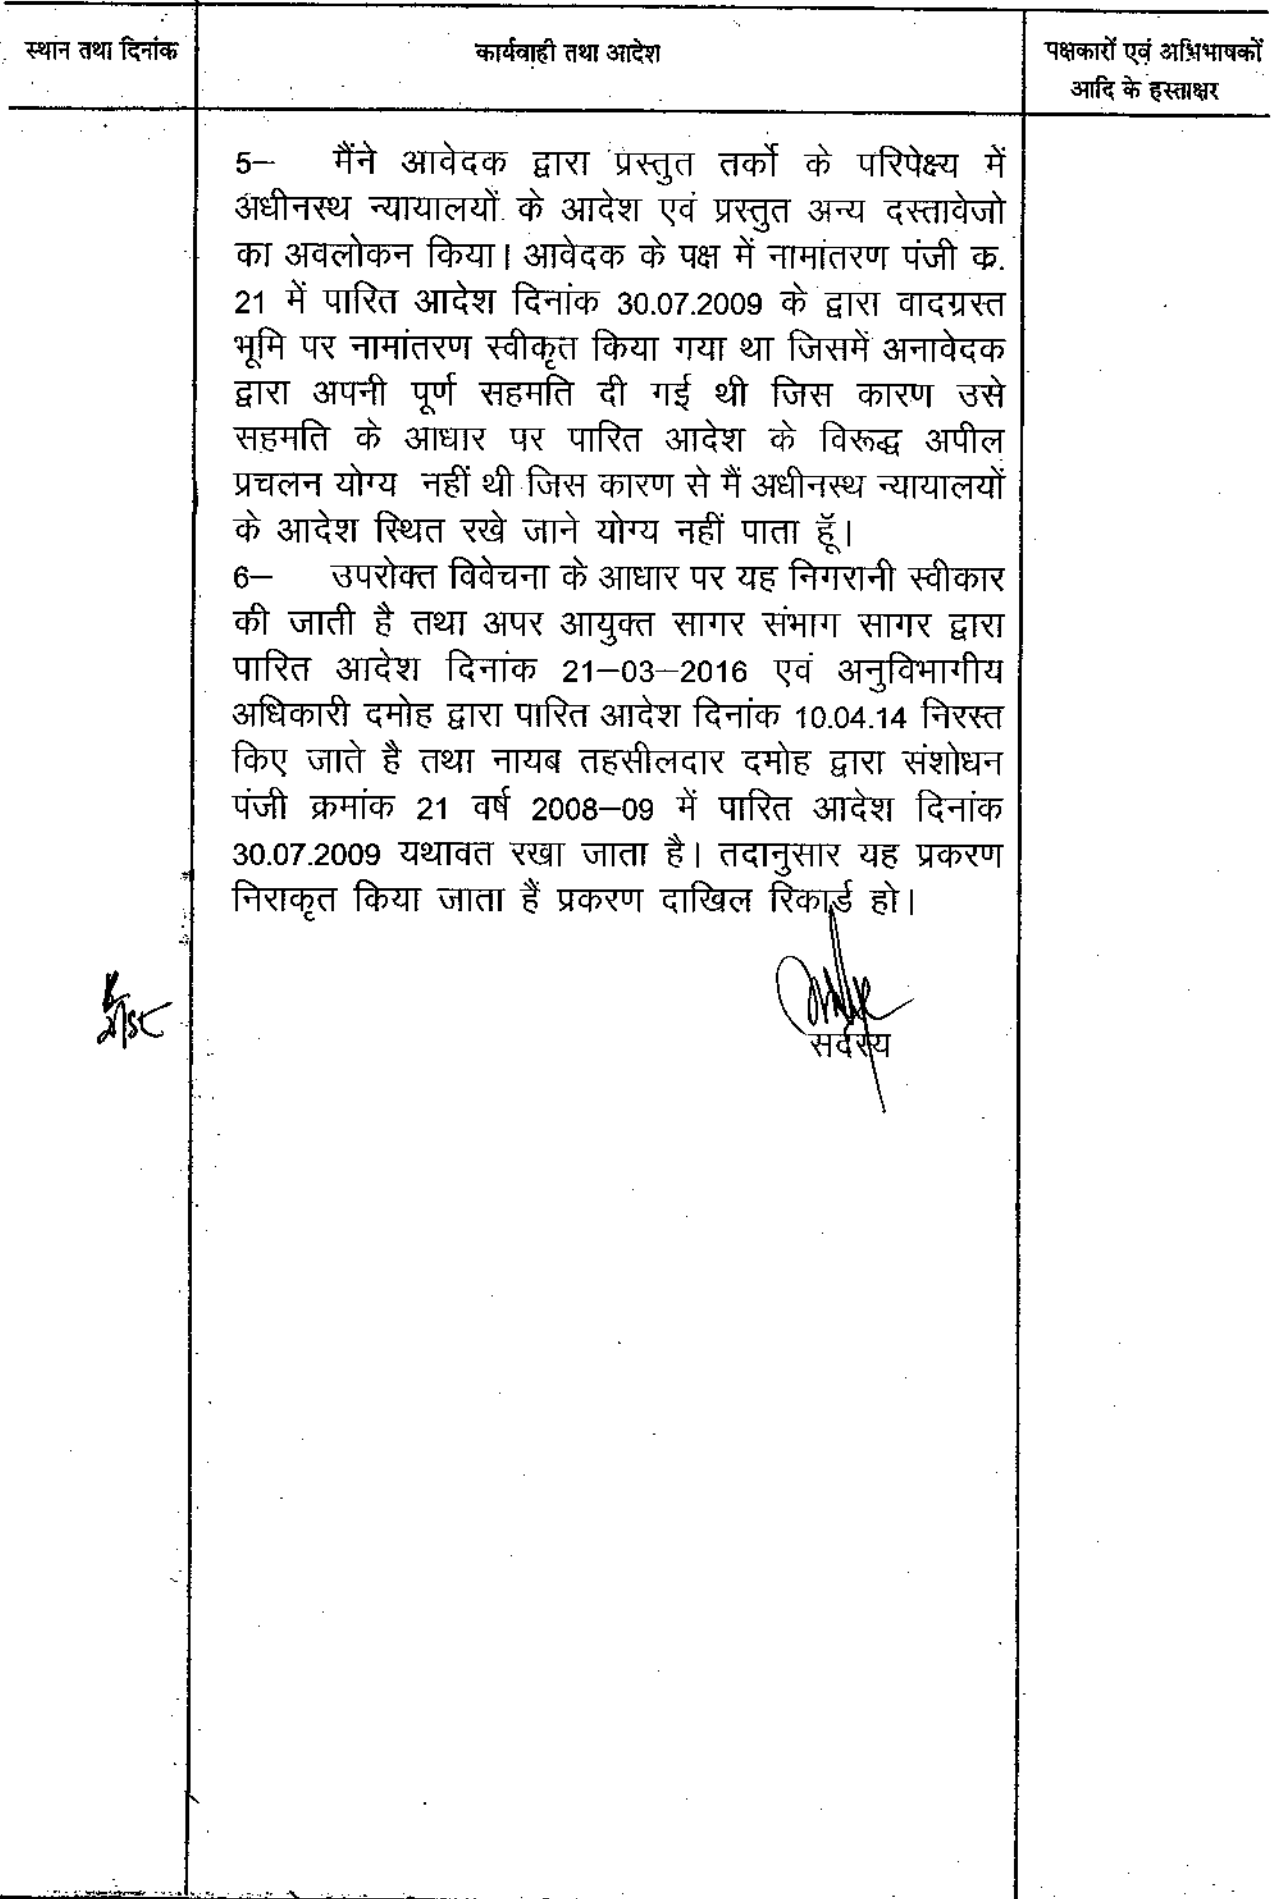 स्थान तथा दिनांक
कार्यवाही तथा आदेश
पक्षकारों एवं अभिभाषकों
आदि के हस्ताक्षर
5– मैंने आवेदक द्वारा प्रस्तुत तर्को के परिपेक्ष्य में
अधीनस्थ न्यायालयों के आदेश एवं प्रस्तुत अन्य दस्तावेजो
का अवलोकन किया। आवेदक के पक्ष में नामांतरण पंजी क.
21 में पारित आदेश दिनांक 30.07.2009 के द्वारा वादग्रस्त
भूमि पर नामांतरण स्वीकृत किया गया था जिसमें अनावेदक
द्वारा अपनी पूर्ण सहमति दी गई थी जिस कारण उसे
सहमति के आधार पर पारित आदेश के विरूद्ध अपील
प्रचलन योग्य नहीं थी जिस कारण से मैं अधीनस्थ न्यायालयों
के आदेश स्थित रखे जाने योग्य नहीं पाता हूॅ।
6– उपरोक्त विवेचना के आधार पर यह निगरानी स्वीकार
की जाती है तथा अपर आयुक्त सागर संभाग सागर द्वारा
पारित आदेश दिनांक 21–03–2016 एवं अनुविभागीय
अधिकारी दमोह द्वारा पारित आदेश दिनांक 10.04.14 निरस्त
किए जाते है तथा नायब तहसीलदार दमोह द्वारा संशोधन
पंजी क्रमांक 21 वर्ष 2008–09 में पारित आदेश दिनांक
30.07.2009 यथावत रखा जाता है। तदानुसार यह प्रकरण
निराकृत किया जाता हैं प्रकरण दाखिल रिकार्ड हो।
सदस्य